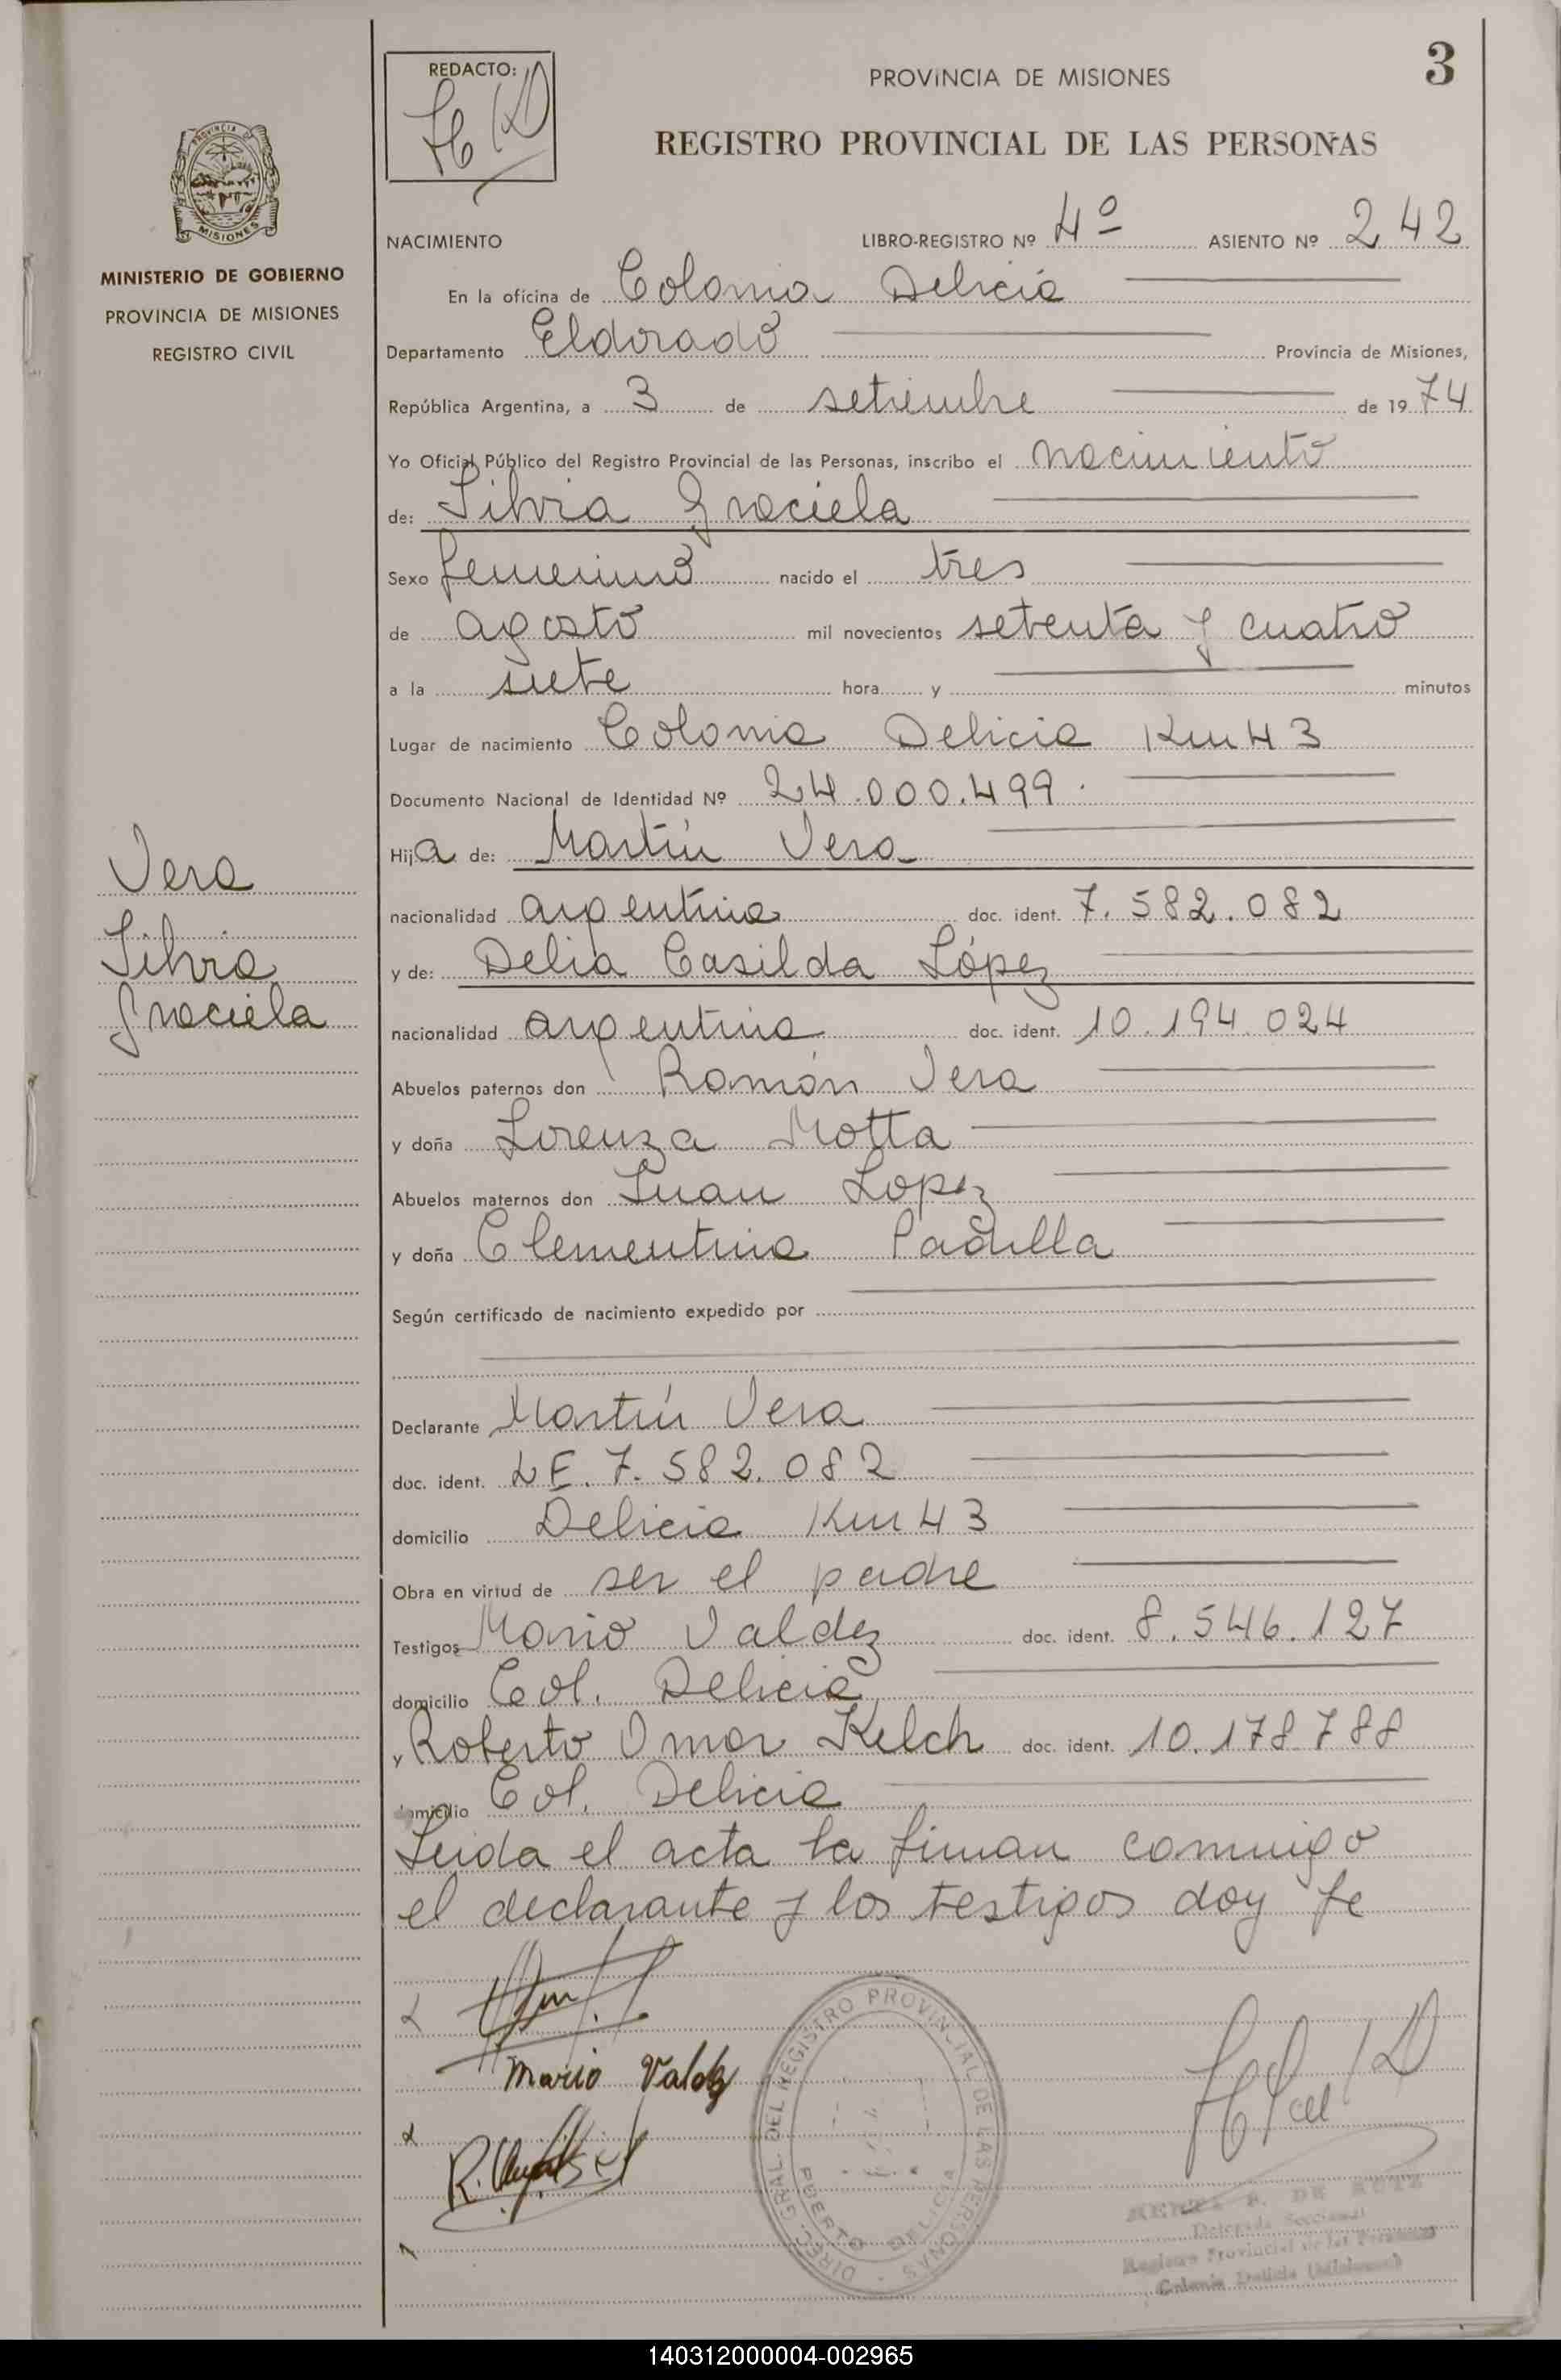 REDACTO:
PROVINCIA DE MISIONES
3
REGISTRO PROVINCIAL DE LAS PERSONAS
PROVINCIA DE MISIONES
MINISTERIO DE GOBIERNO
PROVINCIA DE MISIONES
REGISTRO CIVIL
NACIMIENTO LIBRO-REGISTRO Nº 4º ASIENTO Nº 242
En la oficina de Colonia Delicia
Departamento Eldorado Provincia de Misiones,
República Argentina, a 3 de setiembre de 1974
Yo Oficial Público del Registro Provincial de las Personas, inscribo el nacimiento
de: Silvia Graciela
Sexo femenino nacido el tres
de agosto mil novecientos setenta y cuatro
a la siete hora y minutos
Lugar de nacimiento Colonia Delicia Km 43
Documento Nacional de Identidad Nº 24.000.499.
Hija de: Martín Vera
nacionalidad argentina doc. ident. 7.582.082
y de: Delia Casilda López
nacionalidad argentina doc. ident. 10.194.024
Abuelos paternos don Ramón Vera
y doña Lorenza Motta
Abuelos maternos don Juan Lopez
y doña Clementina Padilla
Según certificado de nacimiento expedido por
Declarante Martín Vera
doc. ident. L E. 7.582.082
domicilio Delicia Km 43
Obra en virtud de ser el padre
Testigos Mario Valdez doc. ident. 8.546.127
domicilio Col. Delicia
y Roberto Omar Kelch doc. ident. 10.178.788
domicilio Col. Delicia
Leida el acta la firman conmigo
el declarante y los testigos doy fe
Vera
Silvia
Graciela
Mario Valdez
DIREC. GRAL. DEL REGISTRO PROVINCIAL DE LAS PERSONAS
PUERTO DELICIA
DE RUTZ
Delegada Seccional
Registro Provincial de las Personas
Colonia Delicia (Misiones)
140312000004-002965